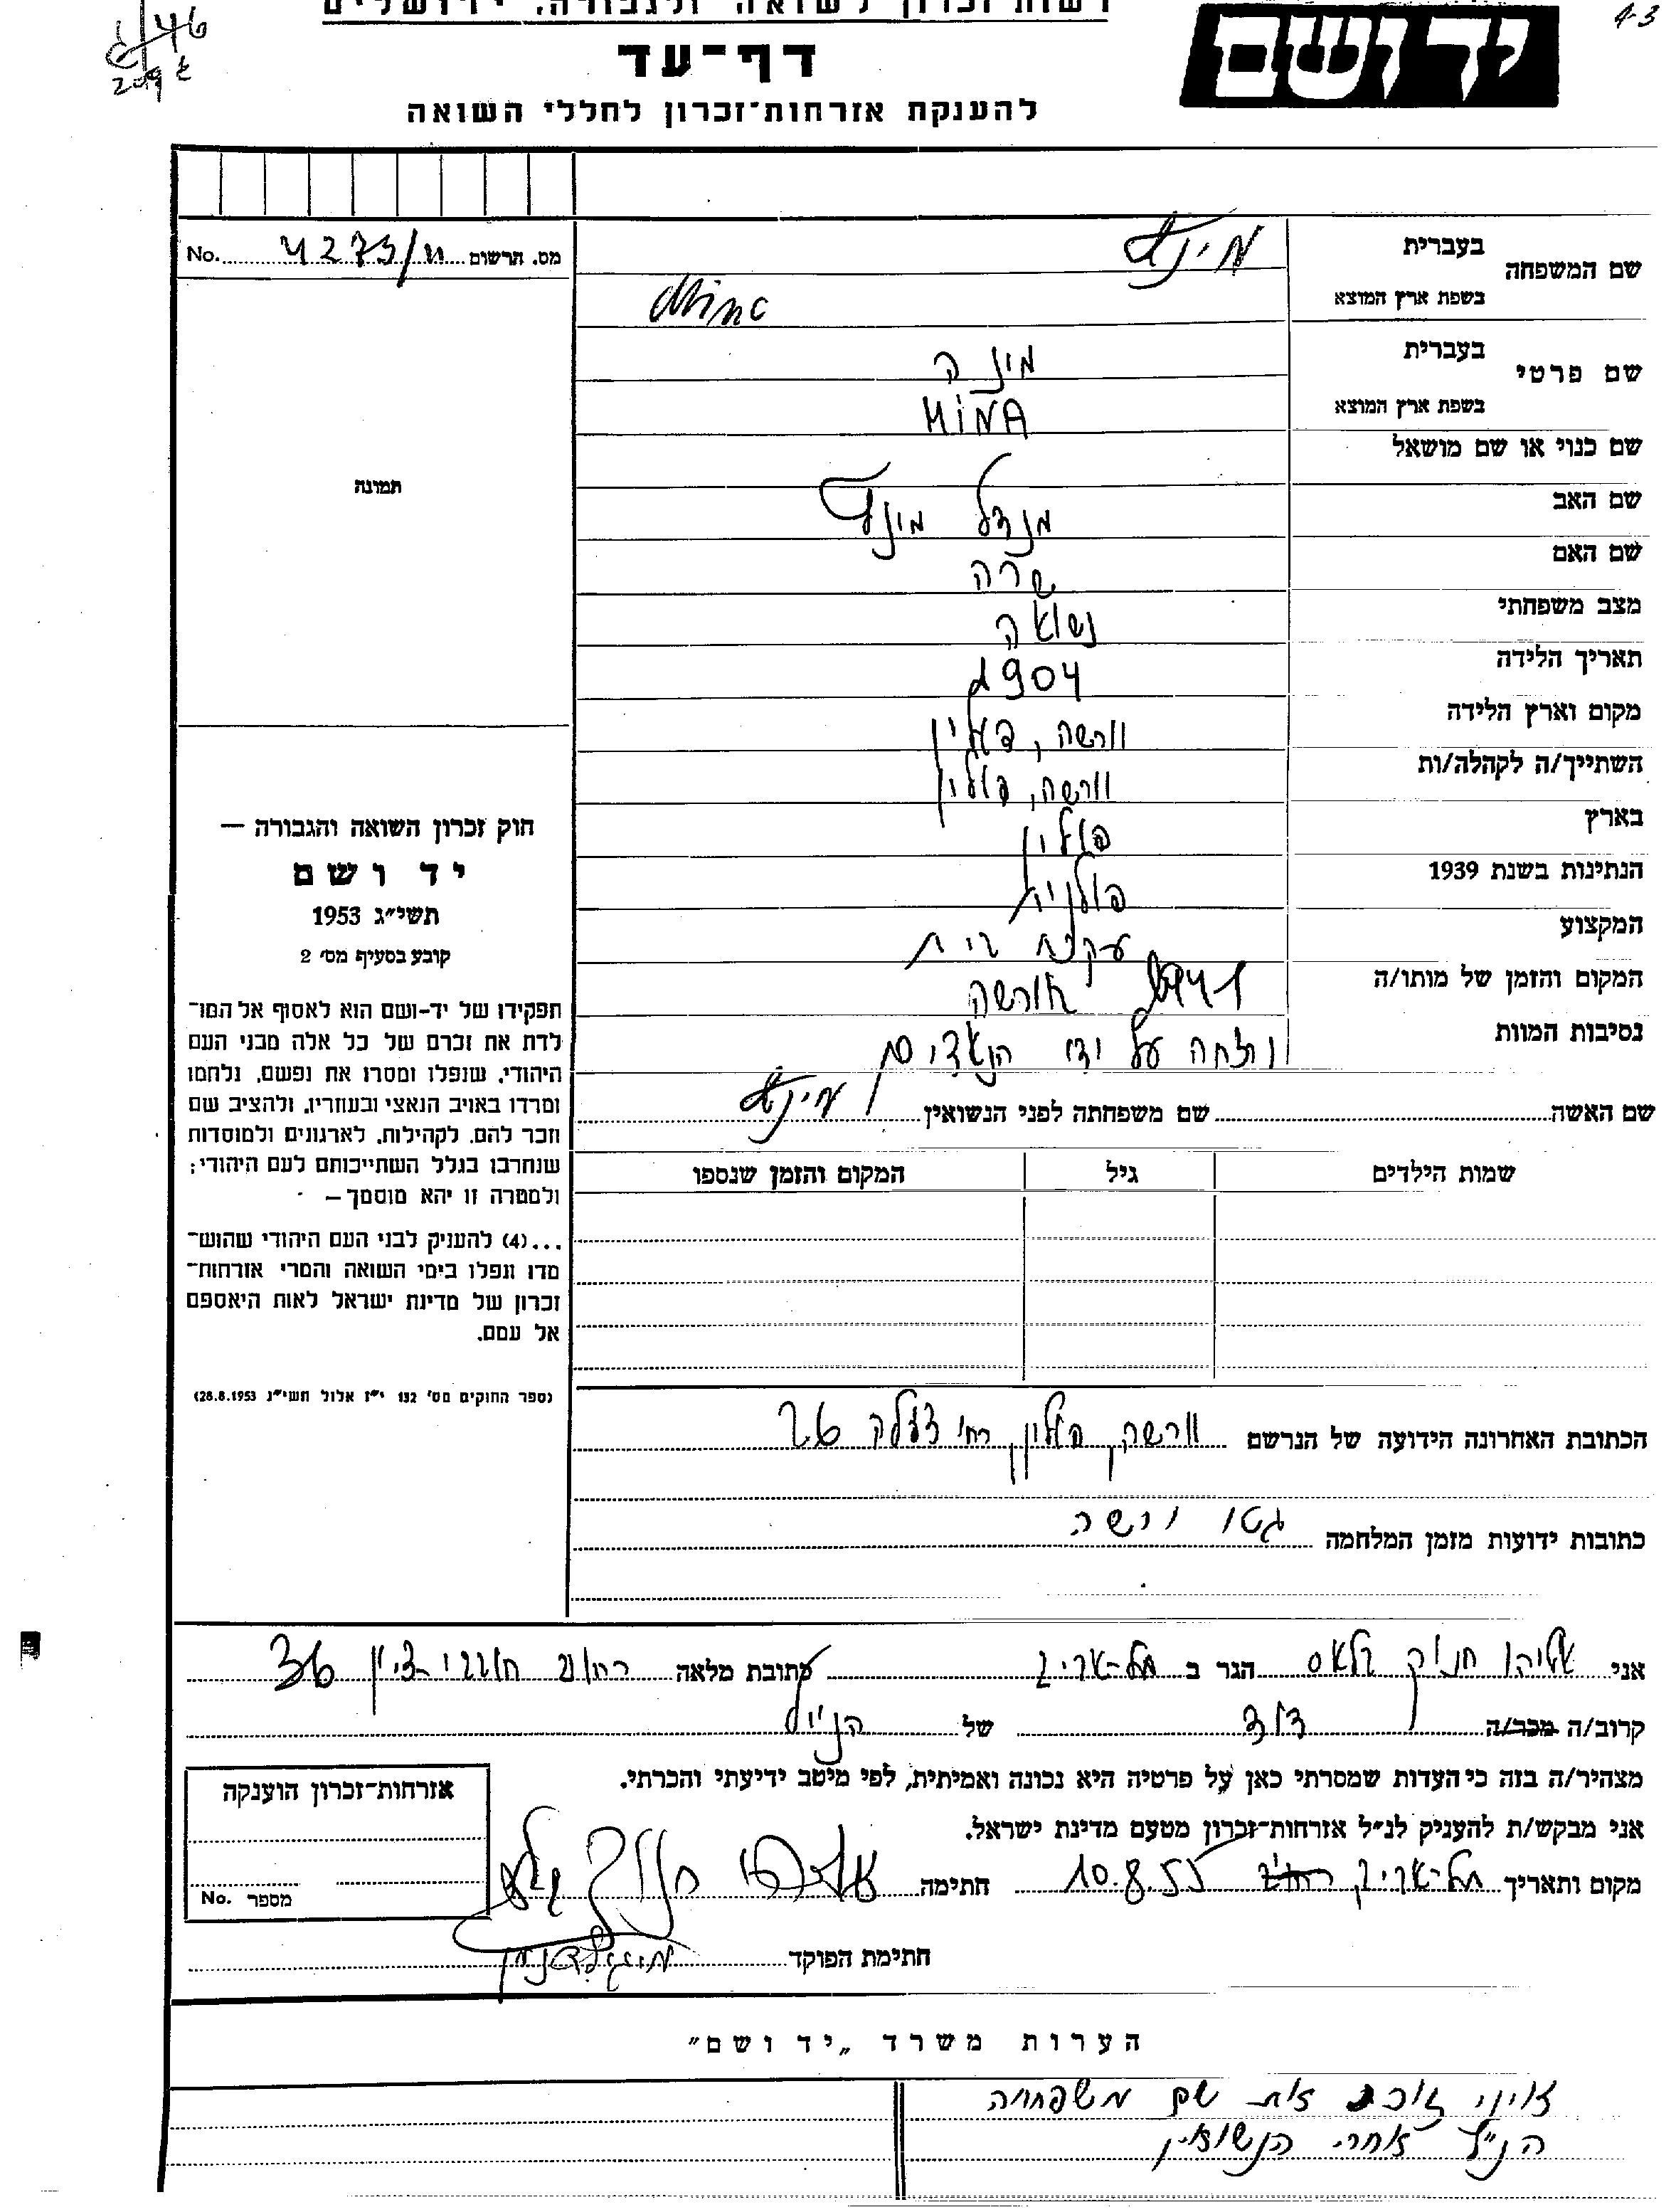 רשות זכרון לשואה ולגבורה, ירושלים
דף-עד
להענקת אזרחות-זכרון לחללי השואה
ידושם
46
209
4-3
שם המשפחה
בעברית
מינץ
בשפת ארץ המוצא
Minc
מס. הרשום No. 4273/11
שם פרטי
בעברית
מינה
בשפת ארץ המוצא
MINA
שם כנוי או שם מושאל
שם האב
מנדל מינץ
שם האם
שרה
מצב משפחתי
נשואה
תאריך הלידה
1904
מקום וארץ הלידה
וורשה, פולין
השתייך/ה לקהלה/ות
וורשה, פולין
בארץ
פולין
הנתינות בשנת 1939
פולנית
המקצוע
עקרת בית
המקום והזמן של מותו/ה
וורשה
נסיבות המוות
נרצחה על ידי הנאצים
שם האשה
שם משפחתה לפני הנשואין
מינץ
שמות הילדים
גיל
המקום והזמן שנספו
הכתובת האחרונה הידועה של הנרשם
וורשה, פולין, רח' דזלנה 26
כתובות ידועות מזמן המלחמה
גטו ורשה
תמונה
חוק זכרון השואה והגבורה —
יד ושם
תשי״ג 1953
קובע בסעיף מס׳ 2
תפקידו של יד-ושם הוא לאסוף אל המו־
לדת את זכרם של כל אלה מבני העם
היהודי, שנפלו ומסרו את נפשם, נלחמו
ומרדו באויב הנאצי ובעוזריו, ולהציב שם
וזכר להם, לקהילות, לארגונים ולמוסדות
שנחרבו בגלל השתייכותם לעם היהודי;
ולמטרה זו יהא מוסמך —
...(4) להעניק לבני העם היהודי שהוש־
מדו ונפלו בימי השואה והמרי אזרחות־
זכרון של מדינת ישראל לאות היאספם
אל עמם.
(ספר החוקים מס׳ 132 י״ז אלול תשי״ג 28.8.1953)
אני אליהו חנוך גלאס הגר ב תל-אביב כתובת מלאה רחוב חובבי-ציון 36
קרוב/ה מכר/ה דוד של הנ״ל
מצהיר/ה בזה כי העדות שמסרתי כאן על פרטיה היא נכונה ואמיתית, לפי מיטב ידיעתי והכרתי.
אני מבקש/ת להעניק לנ״ל אזרחות-זכרון מטעם מדינת ישראל.
מקום ותאריך תל-אביב 10.8.55 חתימה
חתימת הפוקד
אזרחות-זכרון הוענקה
מספר No.
הערות משרד „יד ושם״
אינני זוכר את שם משפחתה
הנ״ל אחרי הנשואין